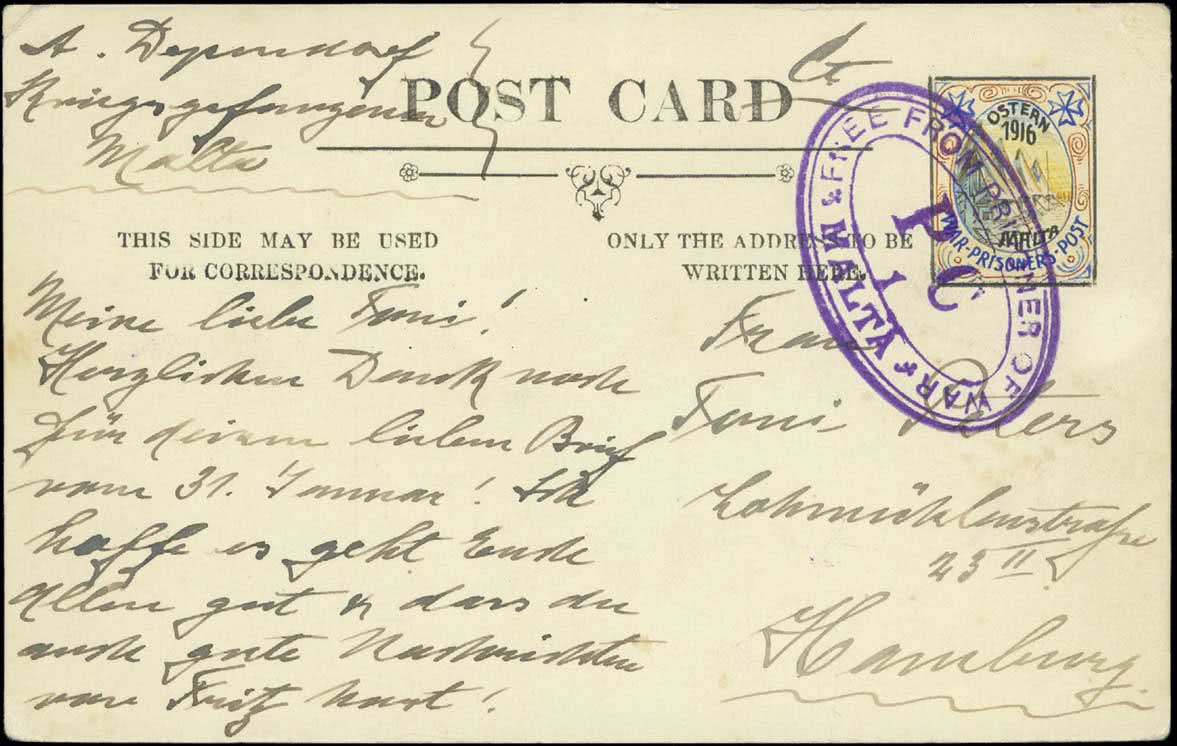 A. Dependorf
Kriegsgefangener
Malta
Ct
POST CARD
OSTERN
1916
MALTA
WAR·PRISONERS·POST
& FREE FROM PRISONER OF WAR
MALTA
P C
1
THIS SIDE MAY BE USED
FOR CORRESPONDENCE.
ONLY THE ADDRESS TO BE
WRITTEN HERE.
Meine liebe Toni!
Herzlichen Dank noch
für deinen lieben Brief
vom 31. Januar! Ich
hoffe es geht Euch
Allen gut & dass du
auch gute Nachrichten
von Fritz hast!
Frau
Toni Peters
Lohmühlenstraße
23 II
Hamburg.